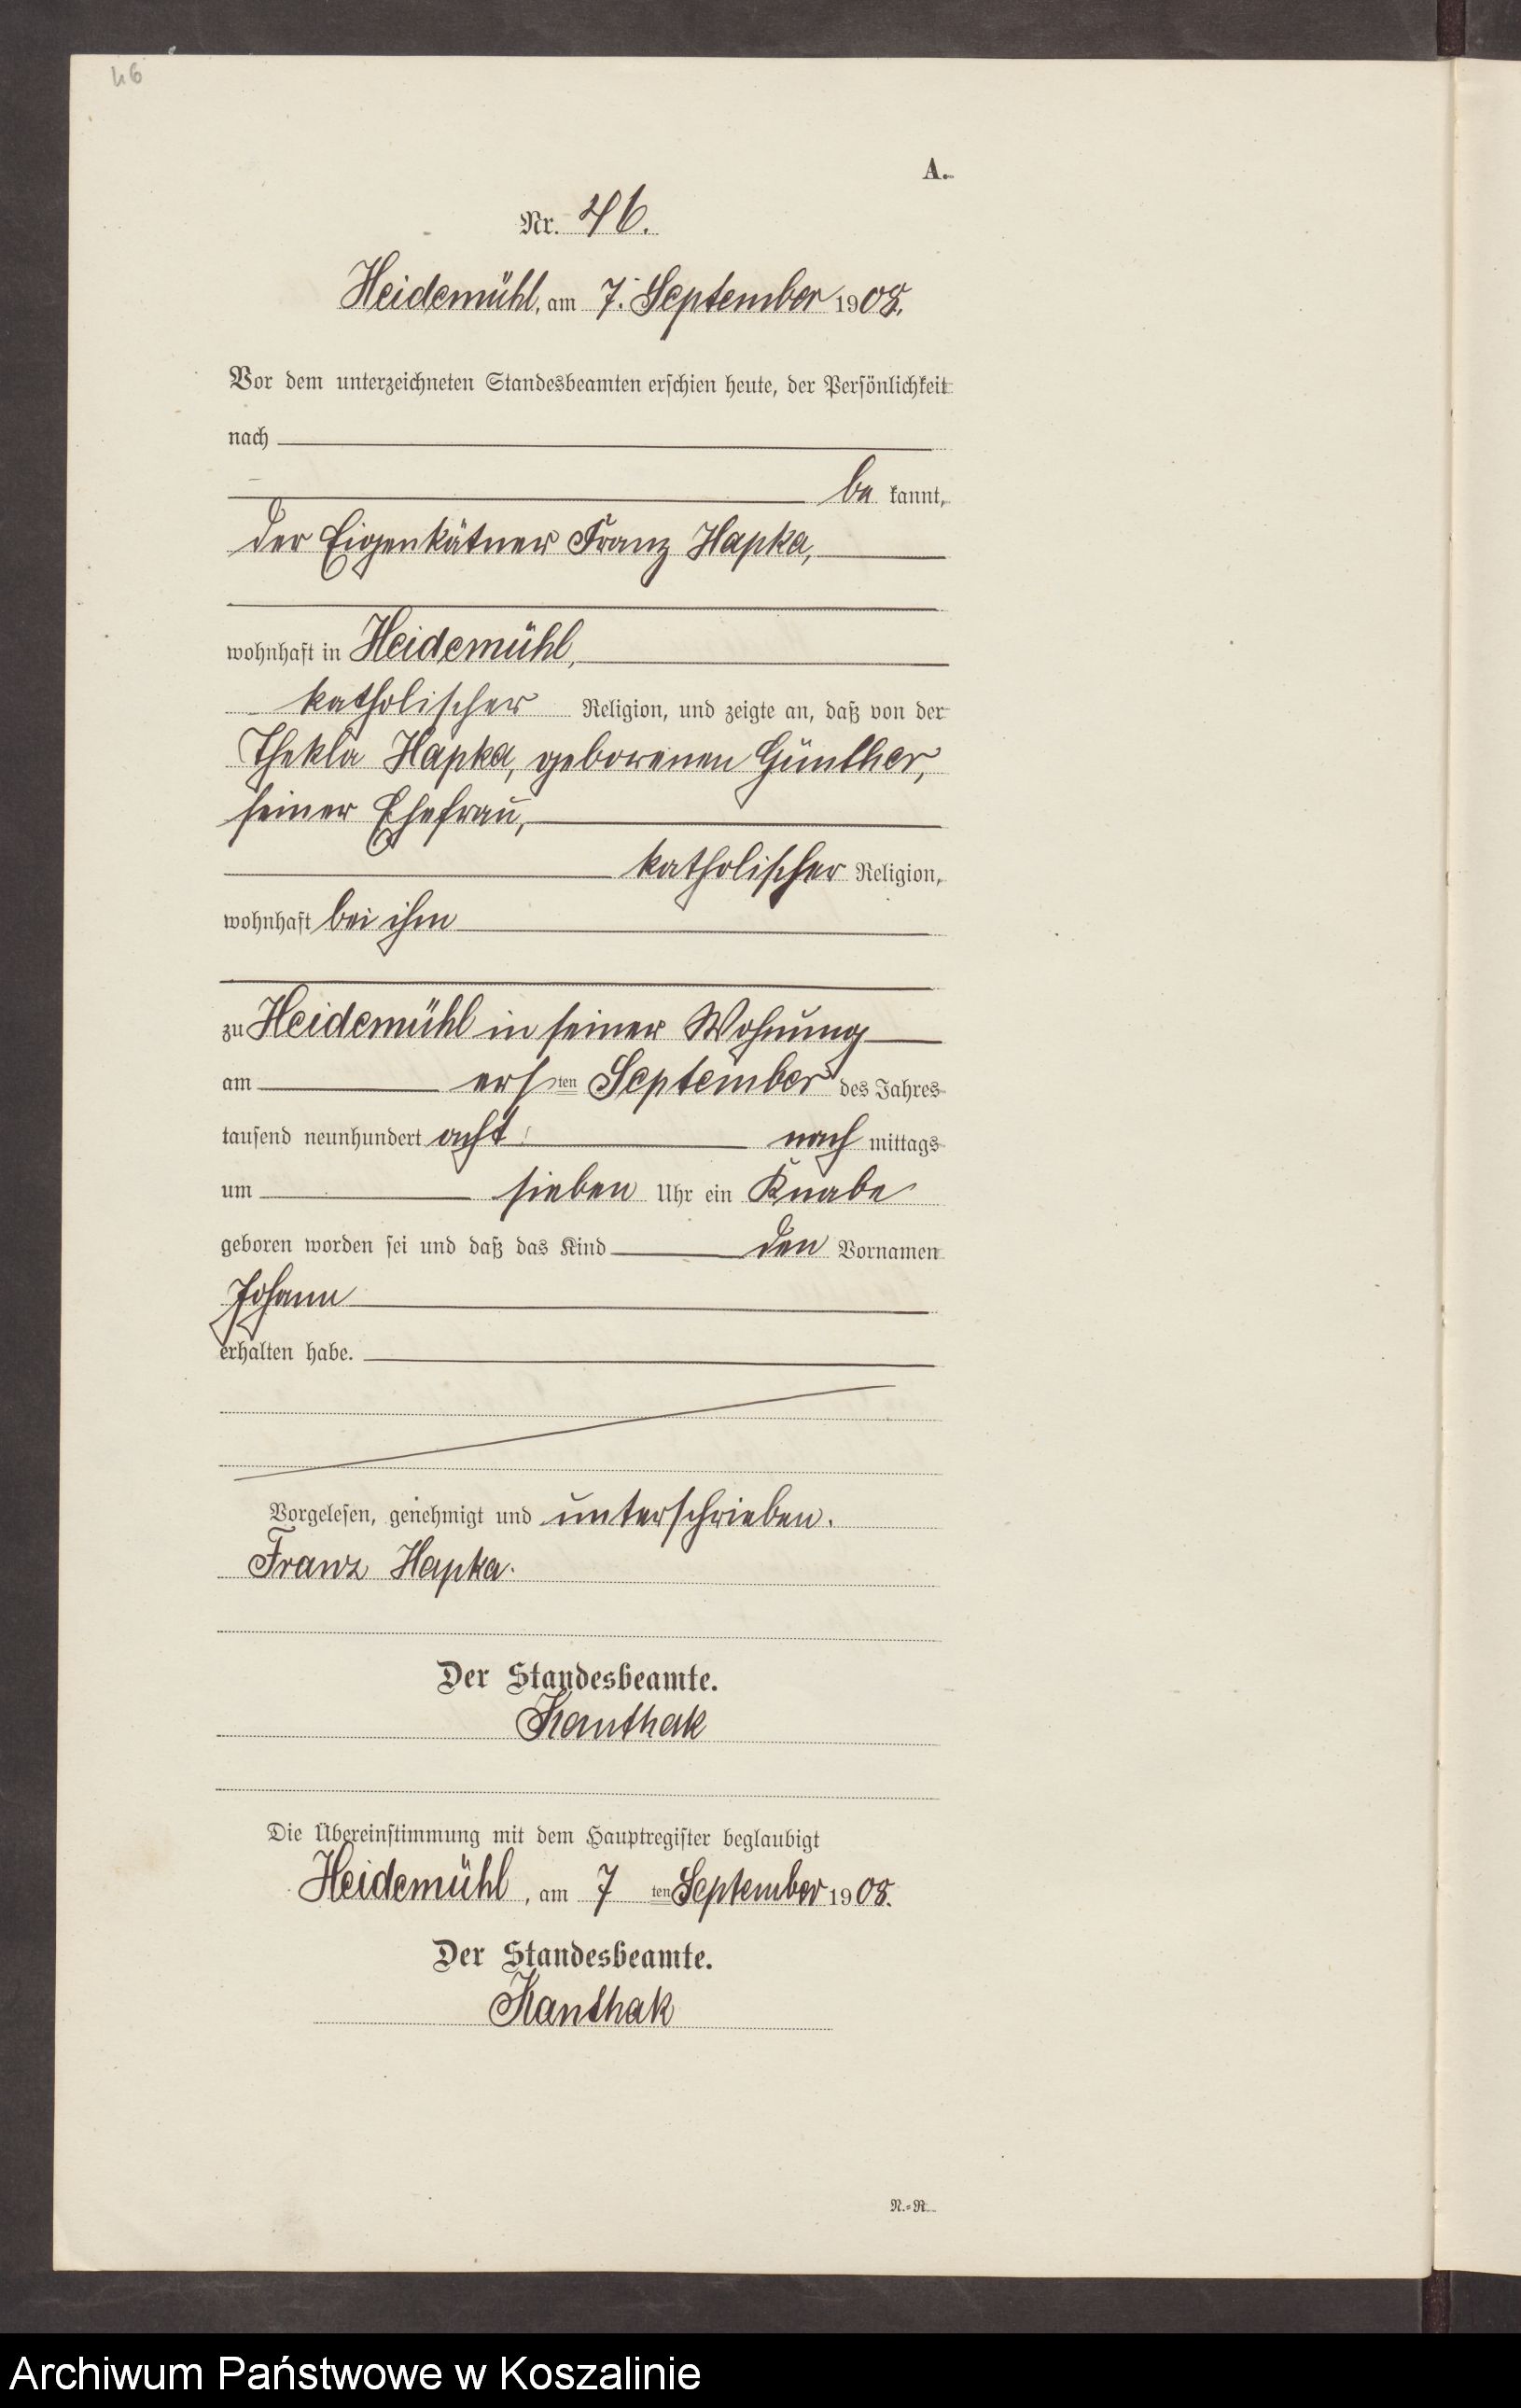 46
A.
Nr. 46.
Heidemühl, am 7. September 1908.
Vor dem unterzeichneten Standesbeamten erschien heute, der Persönlichkeit
nach
be kannt,
der Eigenkätner Franz Hapka,
wohnhaft in Heidemühl,
katholischer Religion, und zeigte an, daß von der
Thekla Hapka, geborenen Günther,
seiner Ehefrau,
katholischer Religion,
wohnhaft bei ihm
zu Heidemühl in seiner Wohnung
am ersten September des Jahres
tausend neunhundert acht nach mittags
um sieben Uhr ein Knabe
geboren worden sei und daß das Kind den Vornamen
Johann
erhalten habe.
Vorgelesen, genehmigt und unterschrieben.
Franz Hapka.
Der Standesbeamte.
Kanthak
Die Übereinstimmung mit dem Hauptregister beglaubigt
Heidemühl, am 7 ten September 1908.
Der Standesbeamte.
Kanthak
N.=R.
Archiwum Państwowe w Koszalinie